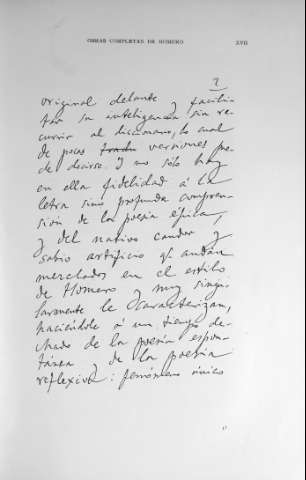 OBRAS COMPLETAS DE HOMERO XVII
2
original delante y facili-
tar su inteligencia sin re-
currir al diccionario, lo cual
de pocas tradu versiones pue-
de decirse. Y no sólo hay
en ella fidelidad á la
letra sino profunda compren-
sión de la poesía épica,
y del nativo candor y
sabio artificio q. andan
mezclados en el estilo
de Homero y muy singu-
larmente le caracterizan,
haciéndole á un tiempo de-
chado de la poesía espon-
tánea y de la poesía
reflexiva: fenómeno único